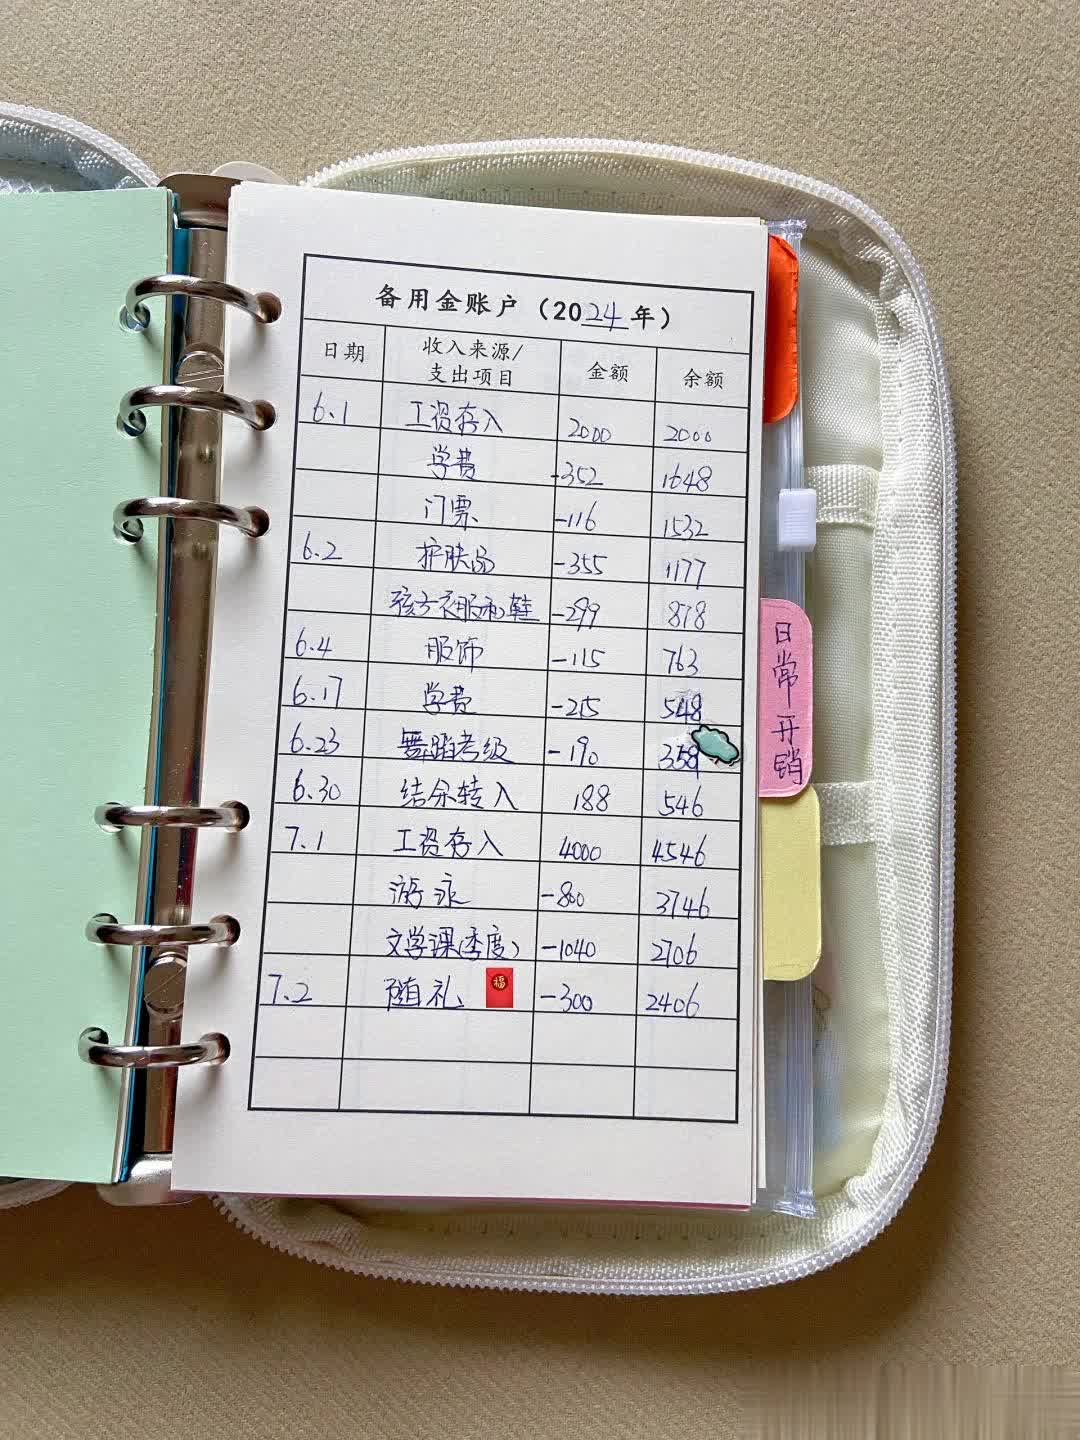 备用金账户（2024年）
日期 收入来源/支出项目 金额 余额
6.1 工资存入 2000 2000
学费 -352 1648
门票 -116 1532
6.2 护肤品 -355 1177
孩子衣服和鞋 -299 878
6.4 服饰 -115 763
6.17 学费 -215 548
6.23 舞蹈考级 -190 358
6.30 结余转入 188 546
7.1 工资存入 4000 4546
游泳 -800 3746
文学课(季度) -1040 2706
7.2 随礼 福 -300 2406
日常开销